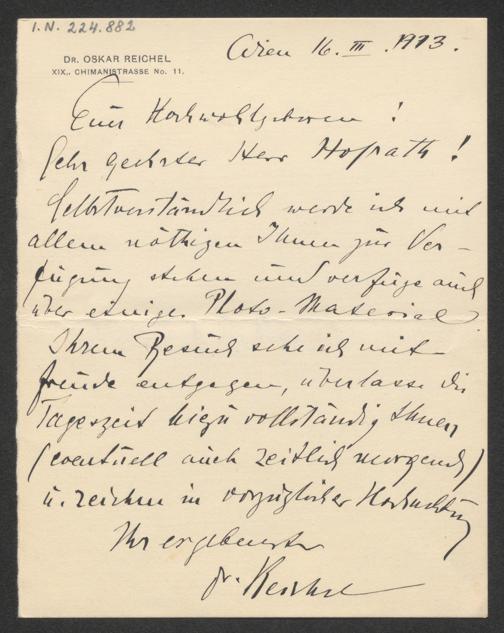 I.N. 224.882
DR. OSKAR REICHEL
XIX., CHIMANISTRASSE No. 11.
Wien 16. III. 1913.
Euer Hochwohlgeboren!
Sehr geehrter Herr Hofrath!
Selbstverständlich werde ich mit
allem nöthigen Ihnen zur Ver-
fügung stehen und verfüge auch
über einiges Photo-Material
Ihrem Besuch sehe ich mit
Freude entgegen, überlasse die
Tageszeit hiezu vollständig Ihnen
(eventuell auch zeitlich morgends)
u. zeichne in vorzüglicher Hochachtung
Ihr ergebenster
Dr. Reichel